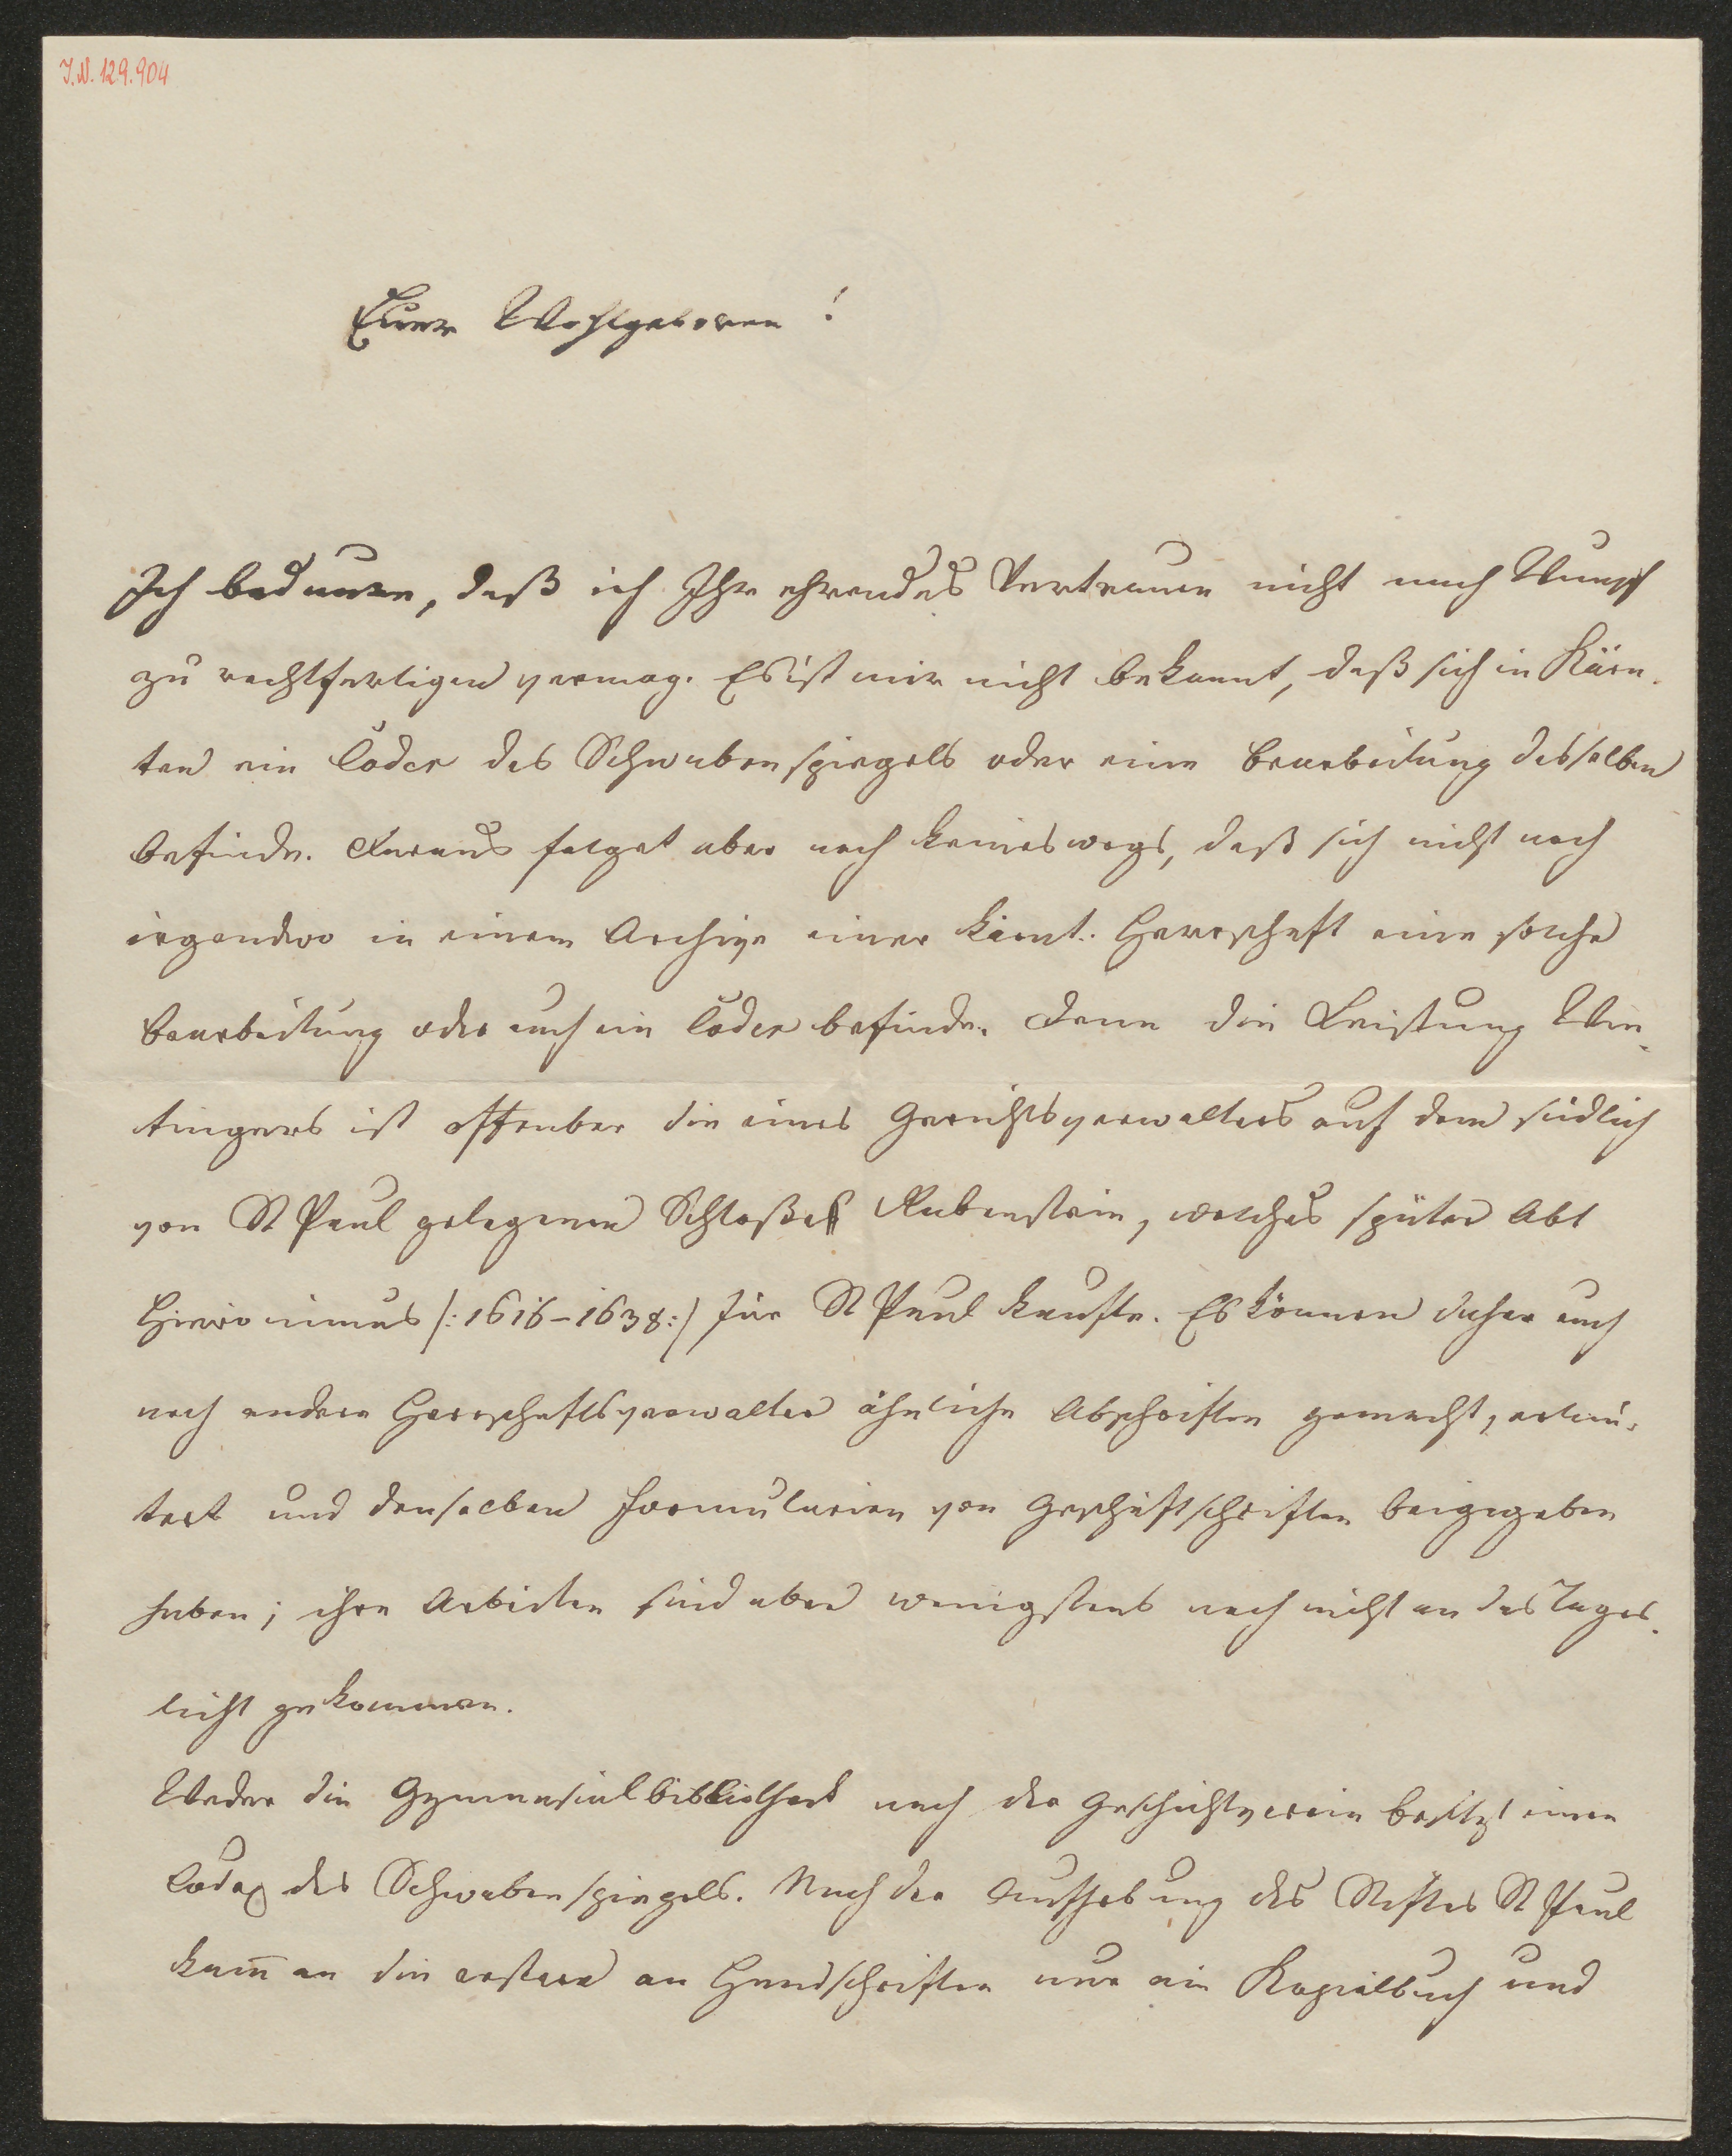 I.N. 129.904
Euer Wohlgeboren!
Ich bedaure, daß ich Ihr ehrendes Vertrauen nicht nach Wunsch
zu rechtfertigen vermag. Es ist mir nicht bekannt, daß sich in Kärn-
ten ein Codex des Schwabenspiegels oder eine Bearbeitung desselben
befinde. Daraus folget aber noch keineswegs, daß sich nicht noch
irgendwo in einem Archive einer kärnt. Herrschaft eine solche
Bearbeitung oder auch ein Codex befinde. Denn die Leistung
tingers ist offenbar die eines Gerichtsverwalters auf dem südlich
von St Paul gelegenen Schloße Rabenstein, welches später Abt
Hieronimus /:1616-1638:/ für St Paul kaufte. Es können daher auch
noch andere Herrschaftsverwalter ähnliche Abschriften gemacht, erläu-
tert und denselben Formularien von Geschäftschriften beigegeben
haben; ihre Arbeiten sind aber wenigstens noch nicht an das Tages-
licht gekommen.
Weder die Gymnasialbibliothek noch der Geschichtverein besitzt einen
Codex des Schwabenspiegels. Nach der Aufhebung des Stiftes St Paul
kam̅ an die erstere an Handschriften nur ein Kopialbuch und